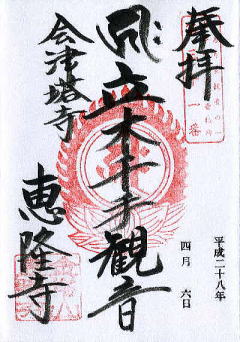 奉拝
立木千手観音
会津塔寺
恵隆寺
平成二十八年
四月 六日